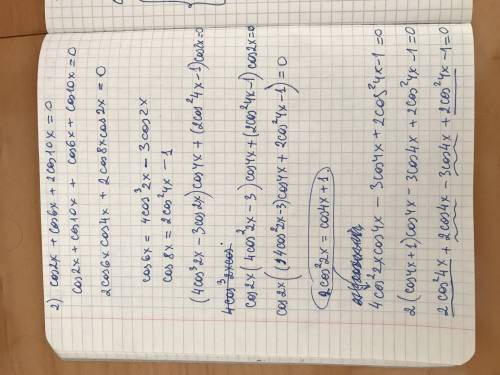 2) cos2x + cos6x + 2cos10x = 0
cos2x + cos10x + cos6x + cos10x = 0
2cos6x cos4x + 2cos8x cos2x = 0
cos6x = 4cos³2x − 3cos2x
cos8x = 2cos²4x − 1
(4cos³2x − 3cos2x)cos4x + (2cos²4x − 1)cos2x = 0
4cos³2xcos
cos2x(4cos²2x − 3)cos4x + (2cos²4x − 1)cos2x = 0
cos2x((4cos²2x − 3)cos4x + 2cos²4x − 1) = 0
2cos²2x = cos4x + 1.
4cos²2xcos4x − 3cos4x + 2cos²4x − 1 = 0
2(cos4x + 1)cos4x − 3cos4x + 2cos²4x − 1 = 0
2cos²4x + 2cos4x − 3cos4x + 2cos²4x − 1 = 0